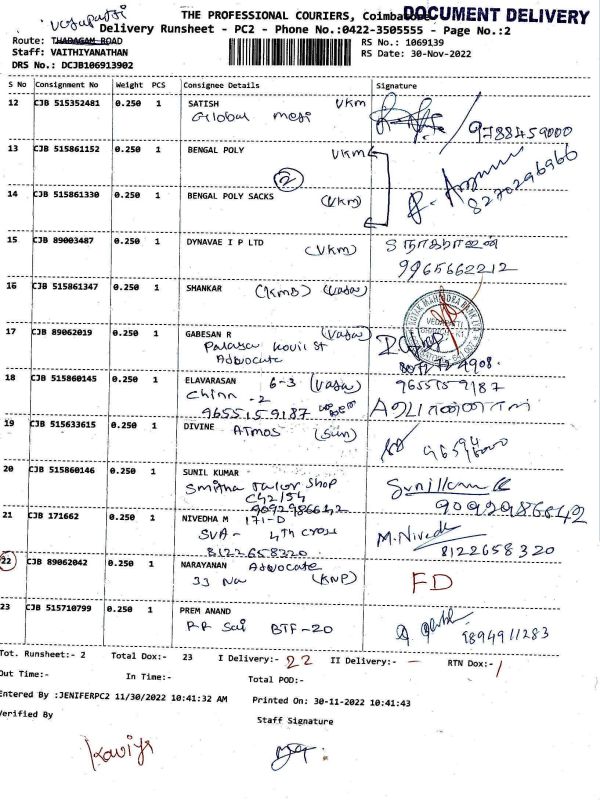 vedapatti
THE PROFESSIONAL COURIERS, Coimbatore
DOCUMENT DELIVERY
Delivery Runsheet - PC2 - Phone No.:0422-3505555 - Page No.:2
Route: THADAGAM ROAD
RS No.: 1069139
Staff: VAITHIYANATHAN
RS Date: 30-Nov-2022
DRS No.: DCJB106913902
S No Consignment No Weight PCS Consignee Details Signature
12 CJB 515352481 0.250 1 SATISH VKM
Global
9788459000
13 CJB 515861152 0.250 1 BENGAL POLY VKM
2
8270296966
14 CJB 515861330 0.250 1 BENGAL POLY SACKS (VKM)
15 CJB 89003487 0.250 1 DYNAVAE I P LTD (VKM)
9965662212
16 CJB 515861347 0.250 1 SHANKAR (KMB) (Vasa)
17 CJB 89062019 0.250 1 GABESAN R (Vasa)
Kovil St
Advocate
18 CJB 515860145 0.250 1 ELAVARASAN 6-3 (Vasa) 9655159187
Chinn -2
9655159187
19 CJB 515633615 0.250 1 DIVINE ATMOS (Sun)
20 CJB 515860146 0.250 1 SUNIL KUMAR
Smitha Tailor Shop
C42/54
9092986642 9092986642
21 CJB 171662 0.250 1 NIVEDHA M 171-D
SVA- 4th Cross M.Nivedh
8122658320 8122658320
22 CJB 89062042 0.250 1 NARAYANAN Advocate
(KNP) FD
23 CJB 515710799 0.250 1 PREM ANAND
R.R Sai BTF-20 9894911283
Tot. Runsheet:- 2 Total Dox:- 23 I Delivery:- 22 II Delivery:- — RTN Dox:- 1
Out Time:- In Time:- Total POD:-
Entered By :JENIFERPC2 11/30/2022 10:41:32 AM Printed On: 30-11-2022 10:41:43
Verified By Staff Signature
Kaviya